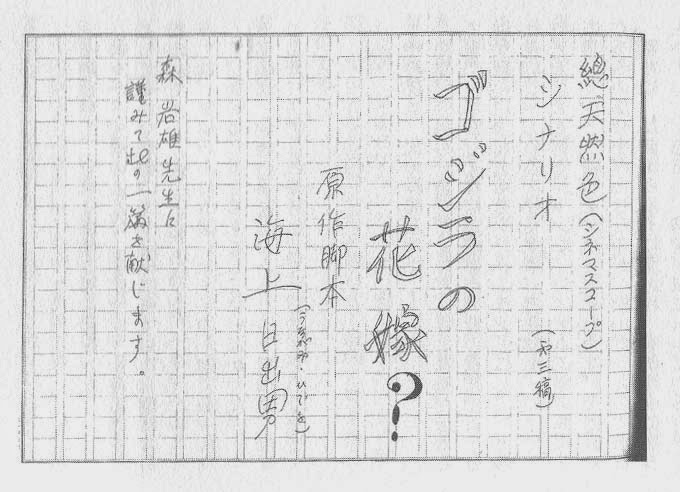 總天然色(シネマスコープ)
シナリオ (第三稿)
ゴジラの
花嫁?
原作脚本
(うながみ・ひでを)
海上日出男
森岩雄先生に
謹みて此の一篇を献じます。